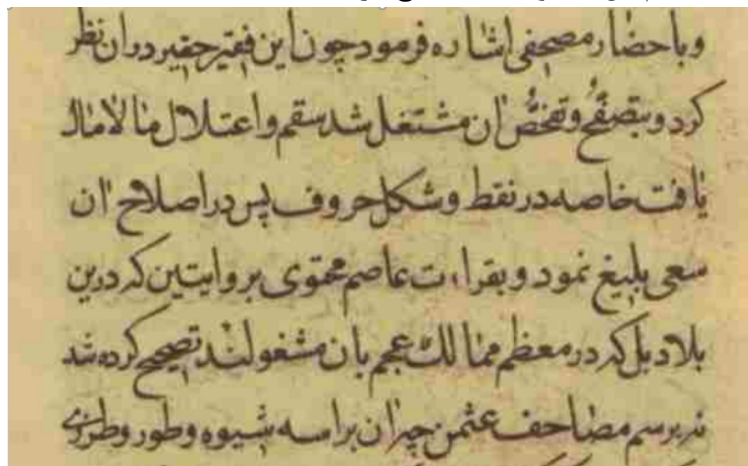 وباحضار مصحفی اشاره فرمود چون این فقیر حقیر در ان نظر
کرد و بتصفح و تفحص ان مشتغل شد سقم و اعتلال مالامال
یافت خاصه در نقط و شکل حروف پس در اصلاح ان
سعی بلیغ نمود و بقراءت عاصم محتوی بروایتین که درین
بلاد بل که در معظم ممالک عجم بان مشغولند تصحیح کرده شد
نه برسم مصاحف عثمن چه ان براسه شیوه و طور و طرزی